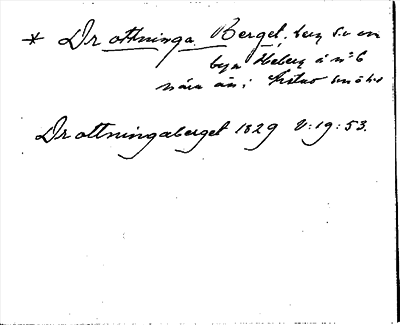 * Drottninga Berget. berg S.v. om
byn Heberg å n:o 6
nära ån;
Drottningaberget 1829 V:19:53.